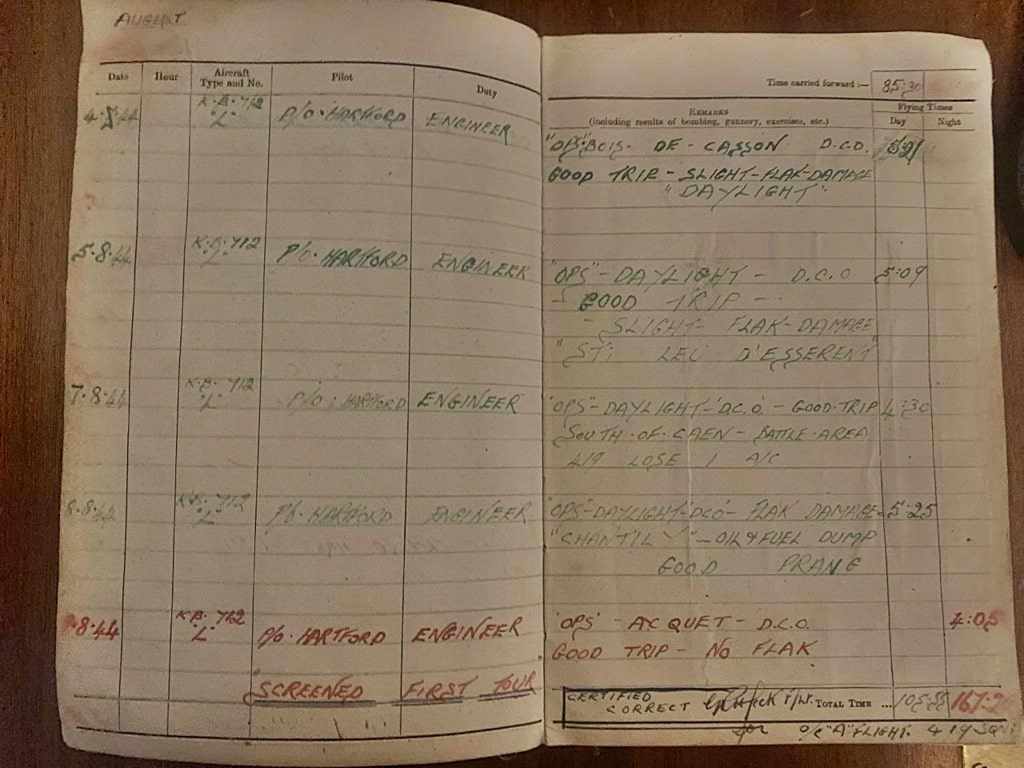 AUGUST
Date Hour Aircraft Type and No. Pilot Duty
4.8.44 K.B.712 L P/O. HARTFORD ENGINEER
5.8.44 K.B.712 L P/O. HARTFORD ENGINEER
7.8.44 K.B.712 L P/O. HARTFORD ENGINEER
8.8. K.B.712 L P/O. HARTFORD ENGINEER
8.44 K.B. 712 L P/O. HARTFORD ENGINEER
SCREENED FIRST TOUR
Time carried forward :— 85:30
REMARKS Flying Times
(including results of bombing, gunnery, exercises, etc.) Day Night
"OPS" BOIS - DE - CASSON D.C.O. 5:21
GOOD TRIP - SLIGHT - FLAK - DAMAGE
"DAYLIGHT"
"OPS" - DAYLIGHT - D.C.O 5:09
- GOOD TRIP -
- SLIGHT - FLAK - DAMAGE
"ST: LEU D'ESSERENT"
"OPS" - DAYLIGHT - D.C.O. - GOOD TRIP 4:30
SOUTH - OF - CAEN - BATTLE - AREA
419 LOSE 1 A/C
"OPS - DAYLIGHT - DCO - FLAK DAMAGE - 5:25
"CHANTILLY" - OIL & FUEL DUMP
GOOD PRANG
"OPS" - ACQUET - D.C.O. 4:05
GOOD TRIP - NO FLAK
CERTIFIED CORRECT TOTAL TIME ... 105:55
for O/C "A" FLIGHT. 419 SQN.